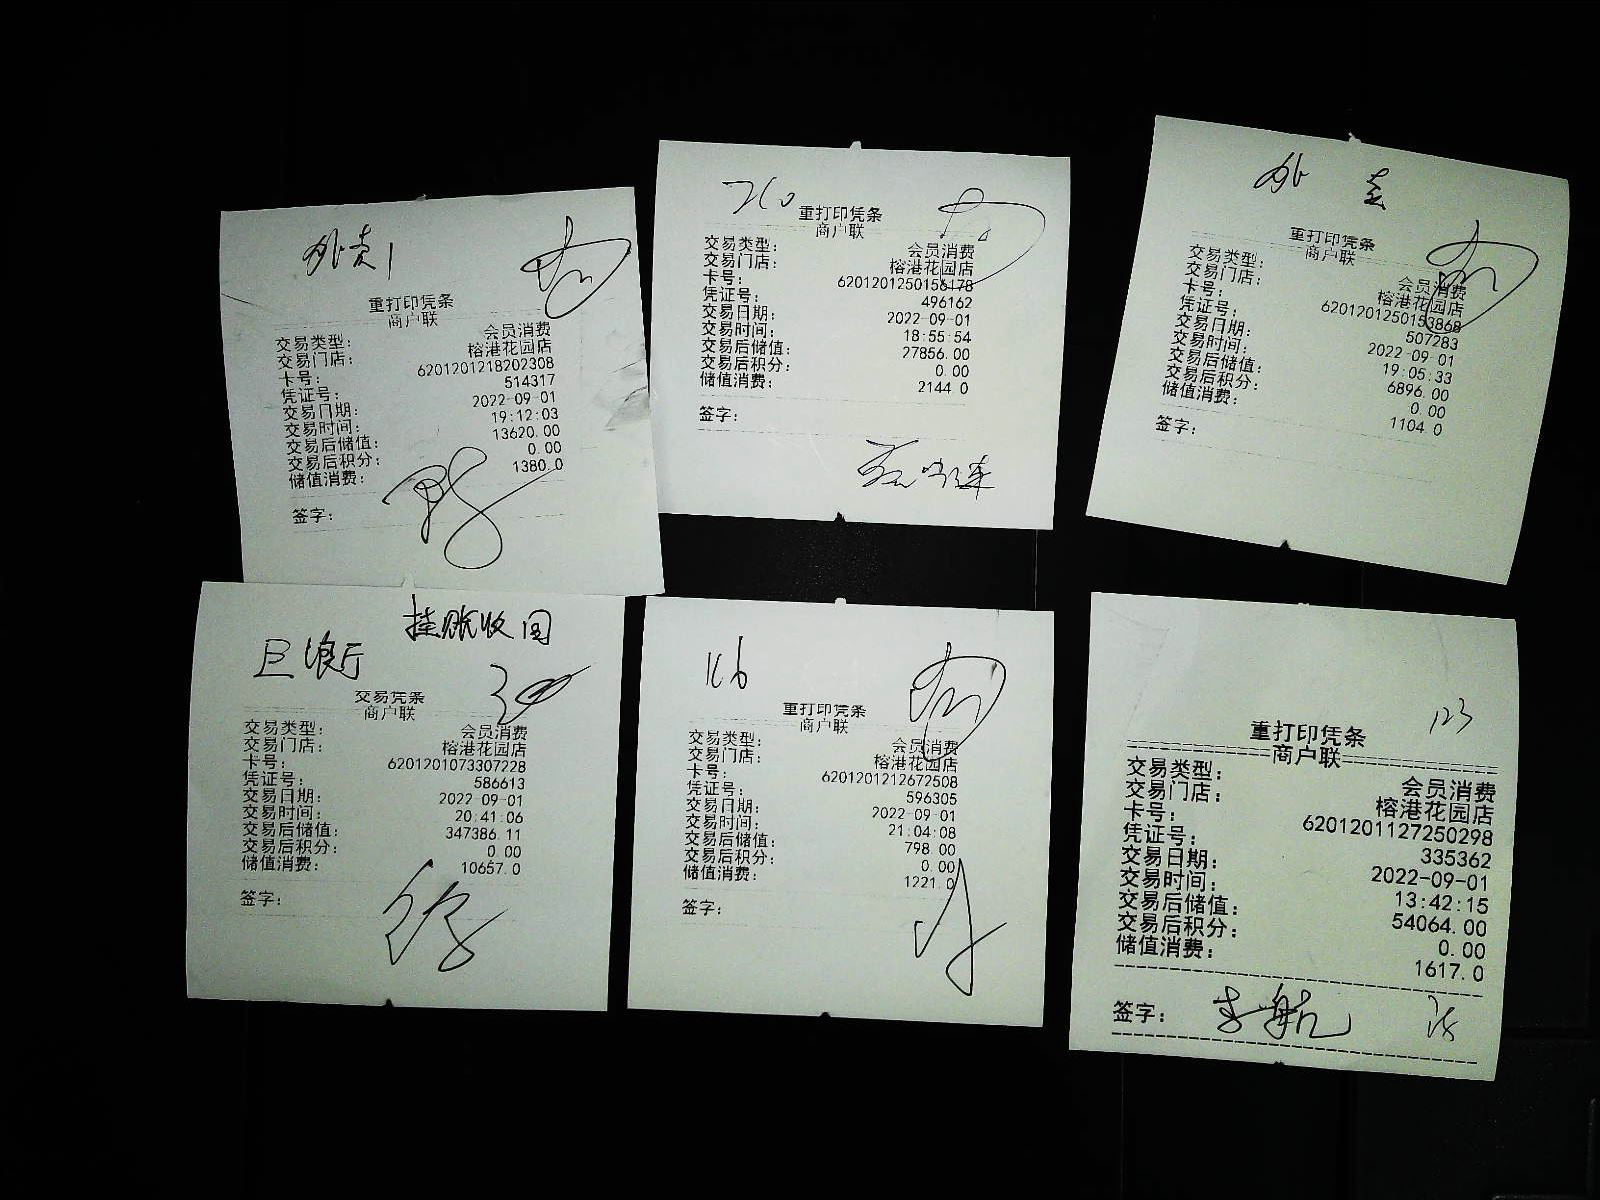 外卖1
重打印凭条
商户联
交易类型: 会员消费
交易门店: 榕港花园店
卡号: 6201201218202308
凭证号: 514317
交易日期: 2022-09-01
交易时间: 19:12:03
交易后储值: 13620.00
交易后积分: 0.00
储值消费: 1380.0
签字:
重打印凭条
商户联
交易类型: 会员消费
交易门店: 榕港花园店
卡号: 6201201250156178
凭证号: 496162
交易日期: 2022-09-01
交易时间: 18:55:54
交易后储值: 27856.00
交易后积分: 0.00
储值消费: 2144.0
签字:
外卖
重打印凭条
商户联
交易类型: 会员消费
交易门店: 榕港花园店
卡号: 6201201250153868
凭证号: 507283
交易日期: 2022-09-01
交易时间: 19:05:33
交易后储值: 6896.00
交易后积分: 0.00
储值消费: 1104.0
签字:
挂账收回
巨浪厅
交易凭条
商户联
交易类型: 会员消费
交易门店: 榕港花园店
卡号: 6201201073307228
凭证号: 586613
交易日期: 2022-09-01
交易时间: 20:41:06
交易后储值: 347386.11
交易后积分: 0.00
储值消费: 10657.0
签字:
重打印凭条
商户联
交易类型: 会员消费
交易门店: 榕港花园店
卡号: 6201201212672508
凭证号: 596305
交易日期: 2022-09-01
交易时间: 21:04:08
交易后储值: 798.00
交易后积分: 0.00
储值消费: 1221.0
签字:
123
重打印凭条
商户联
交易类型: 会员消费
交易门店: 榕港花园店
卡号: 6201201127250298
凭证号: 335362
交易日期: 2022-09-01
交易时间: 13:42:15
交易后储值: 54064.00
交易后积分: 0.00
储值消费: 1617.0
签字: 李航